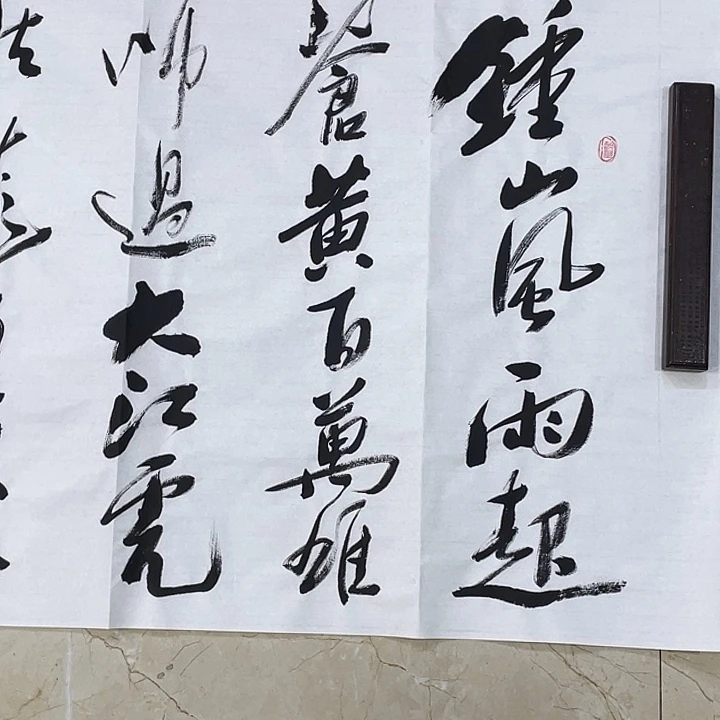 鍾山風雨起
蒼黃百萬雄
師過大江虎